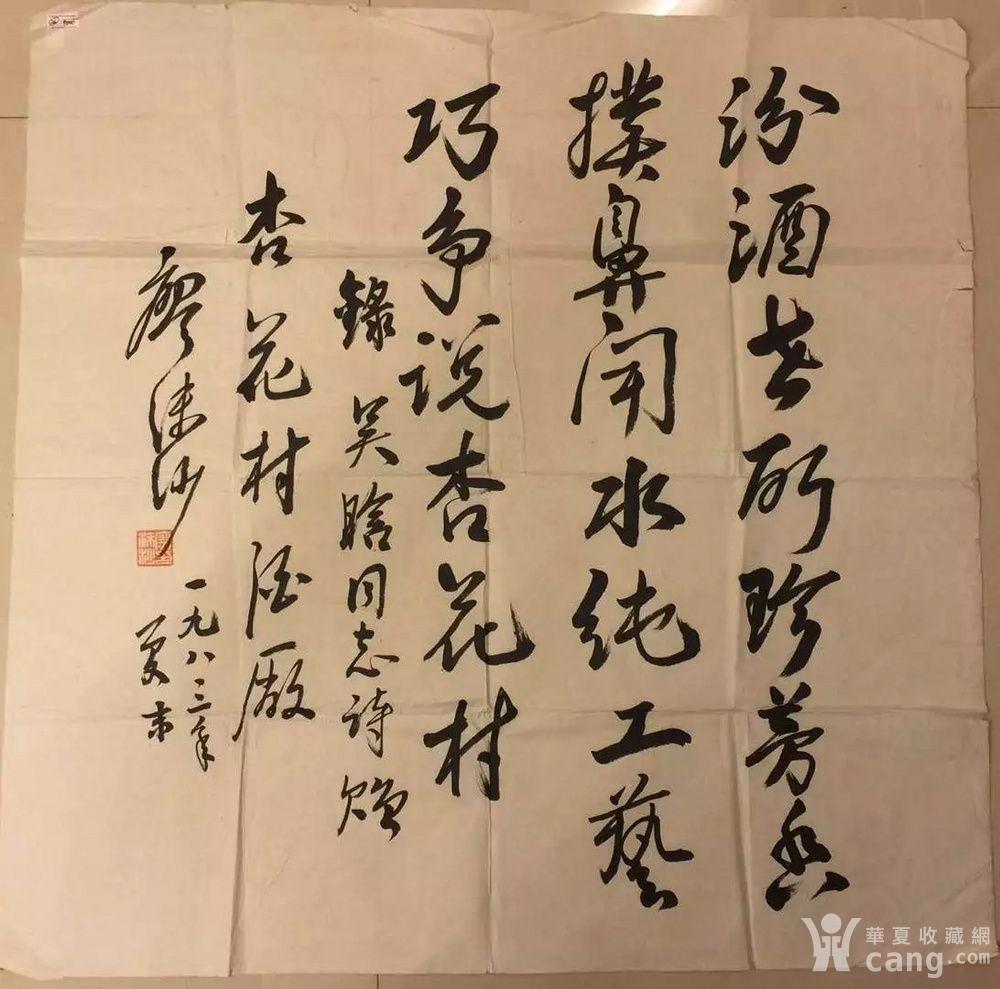 汾酒世所珍芳香
撲鼻闻水纯工藝
巧争说杏花村
錄吴晗同志诗赠
杏花村酒廠
廖沫沙
一九八三年
夏末
華夏收藏網
cang.com